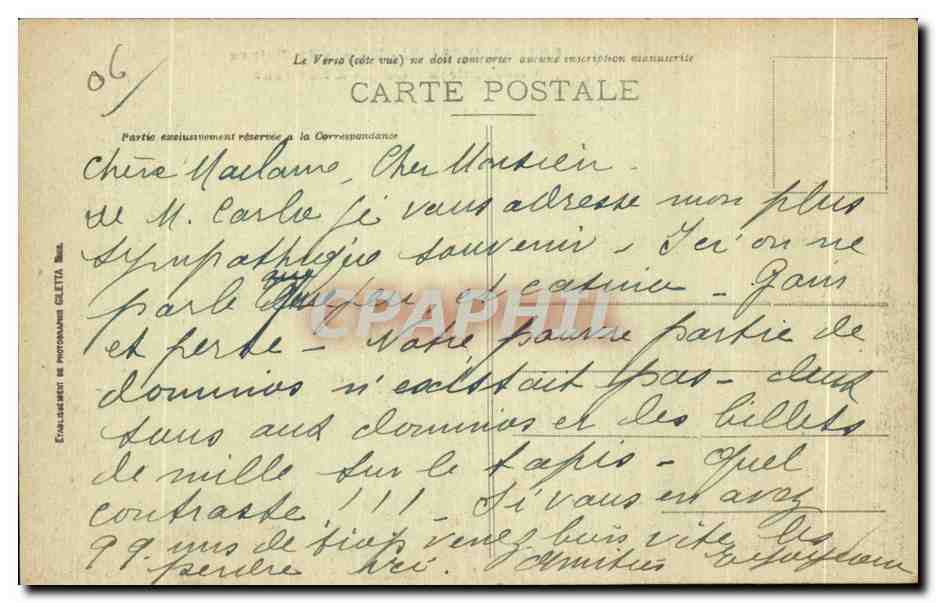 06
Le Verso (côté vue) ne doit comporter aucune inscription manuscrite
CARTE POSTALE
Partie exclusivement réservée a la Correspondance
Chère Madame, Cher Monsieur.
de M. Carlo je vous adresse mon plus
sympathique souvenir - Ici on ne
parle que jeu et casino - Gain
et perte - Notre pauvre partie de
dominos n'existait pas - deux
sous aux dominos et des billets
de mille sur le tapis - quel
contraste !!! - Si vous en avez
qq. uns de trop venez bien vite les
perdre ici. Amitiés
ETABLISSEMENT DE PHOTOGRAPHIE GILETTA NICE.
CPAPHIL